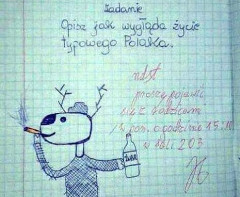 Zadanie
Opisz jak wygląda życie
typowego Polaka.
ndst
proszę pojawić
się z rodzicami
o godzinie 15:10
w sali 203